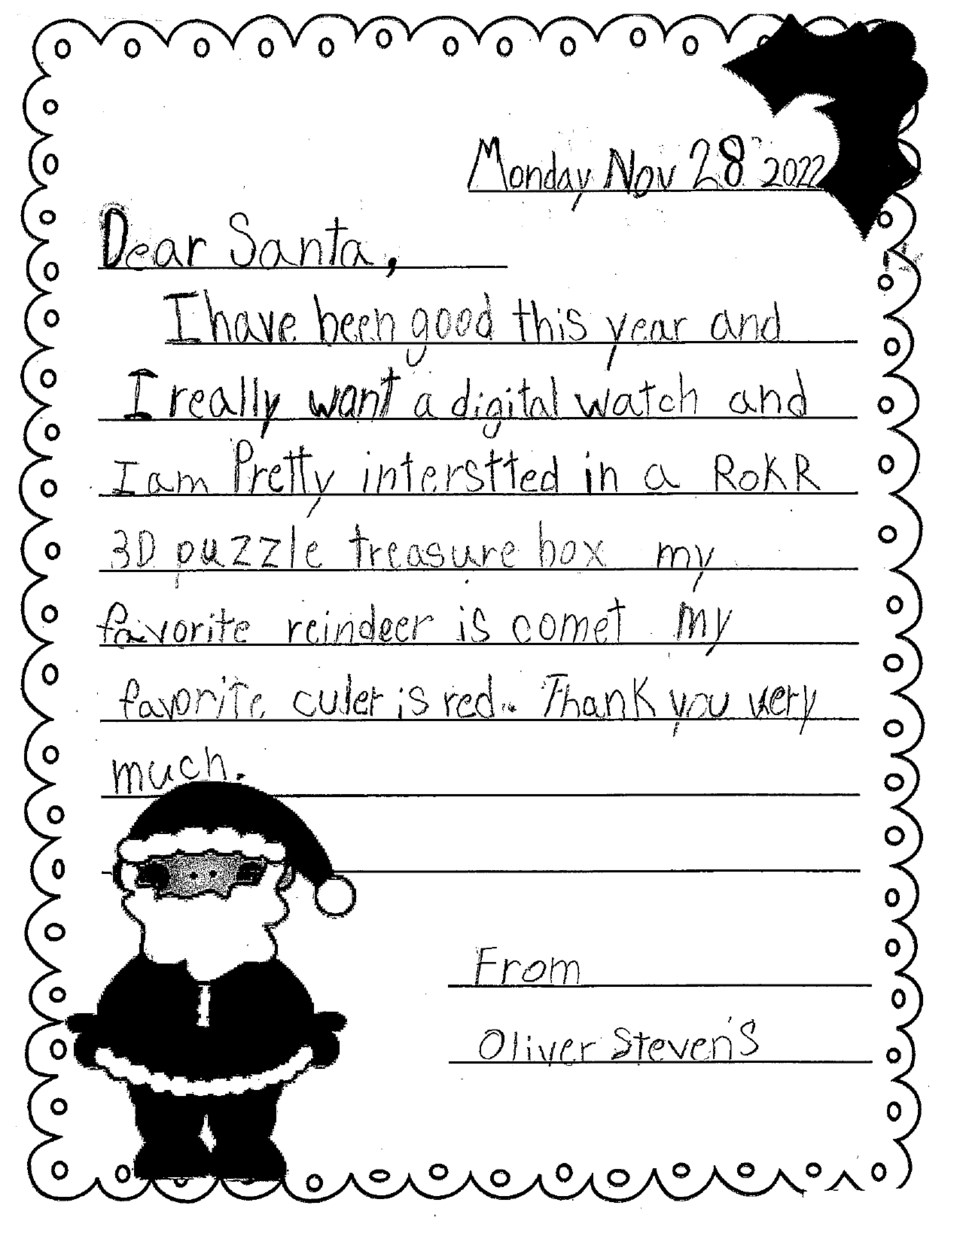 Monday Nov 28 2022
Dear Santa,
I have been good this year and
I really want a digital watch and
I am Pretty interstted in a ROKR
3D puzzle treasure box my
favorite reindeer is comet my
favorite culer is red. Thank you very
much.
From
Oliver Steven's